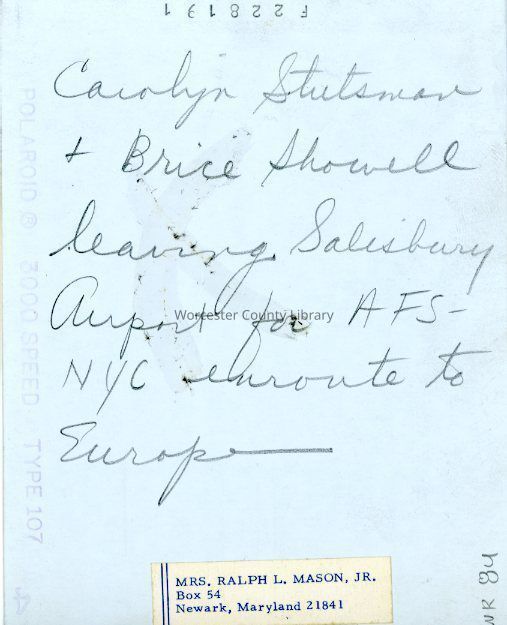 F228191
Carolyn Stutsman
+ Brice Showell
leaving Salisbury
Airport for AFS-
NYC enroute to
Europe
Worcester County Library
POLAROID ® 3000 SPEED · TYPE 107
4
MRS. RALPH L. MASON, JR.
Box 54
Newark, Maryland 21841
NK 84